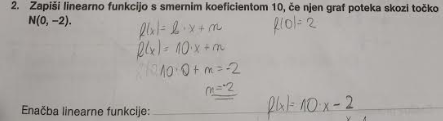 2. Zapiši linearno funkcijo s smernim koeficientom 10, če njen graf poteka skozi točko
N(0, –2).
f(x)= k · x + n
f(0)= 2
f(x)= 10 · x + n
10 · 0 + n = -2
n = -2
Enačba linearne funkcije: f(x)= 10 · x - 2